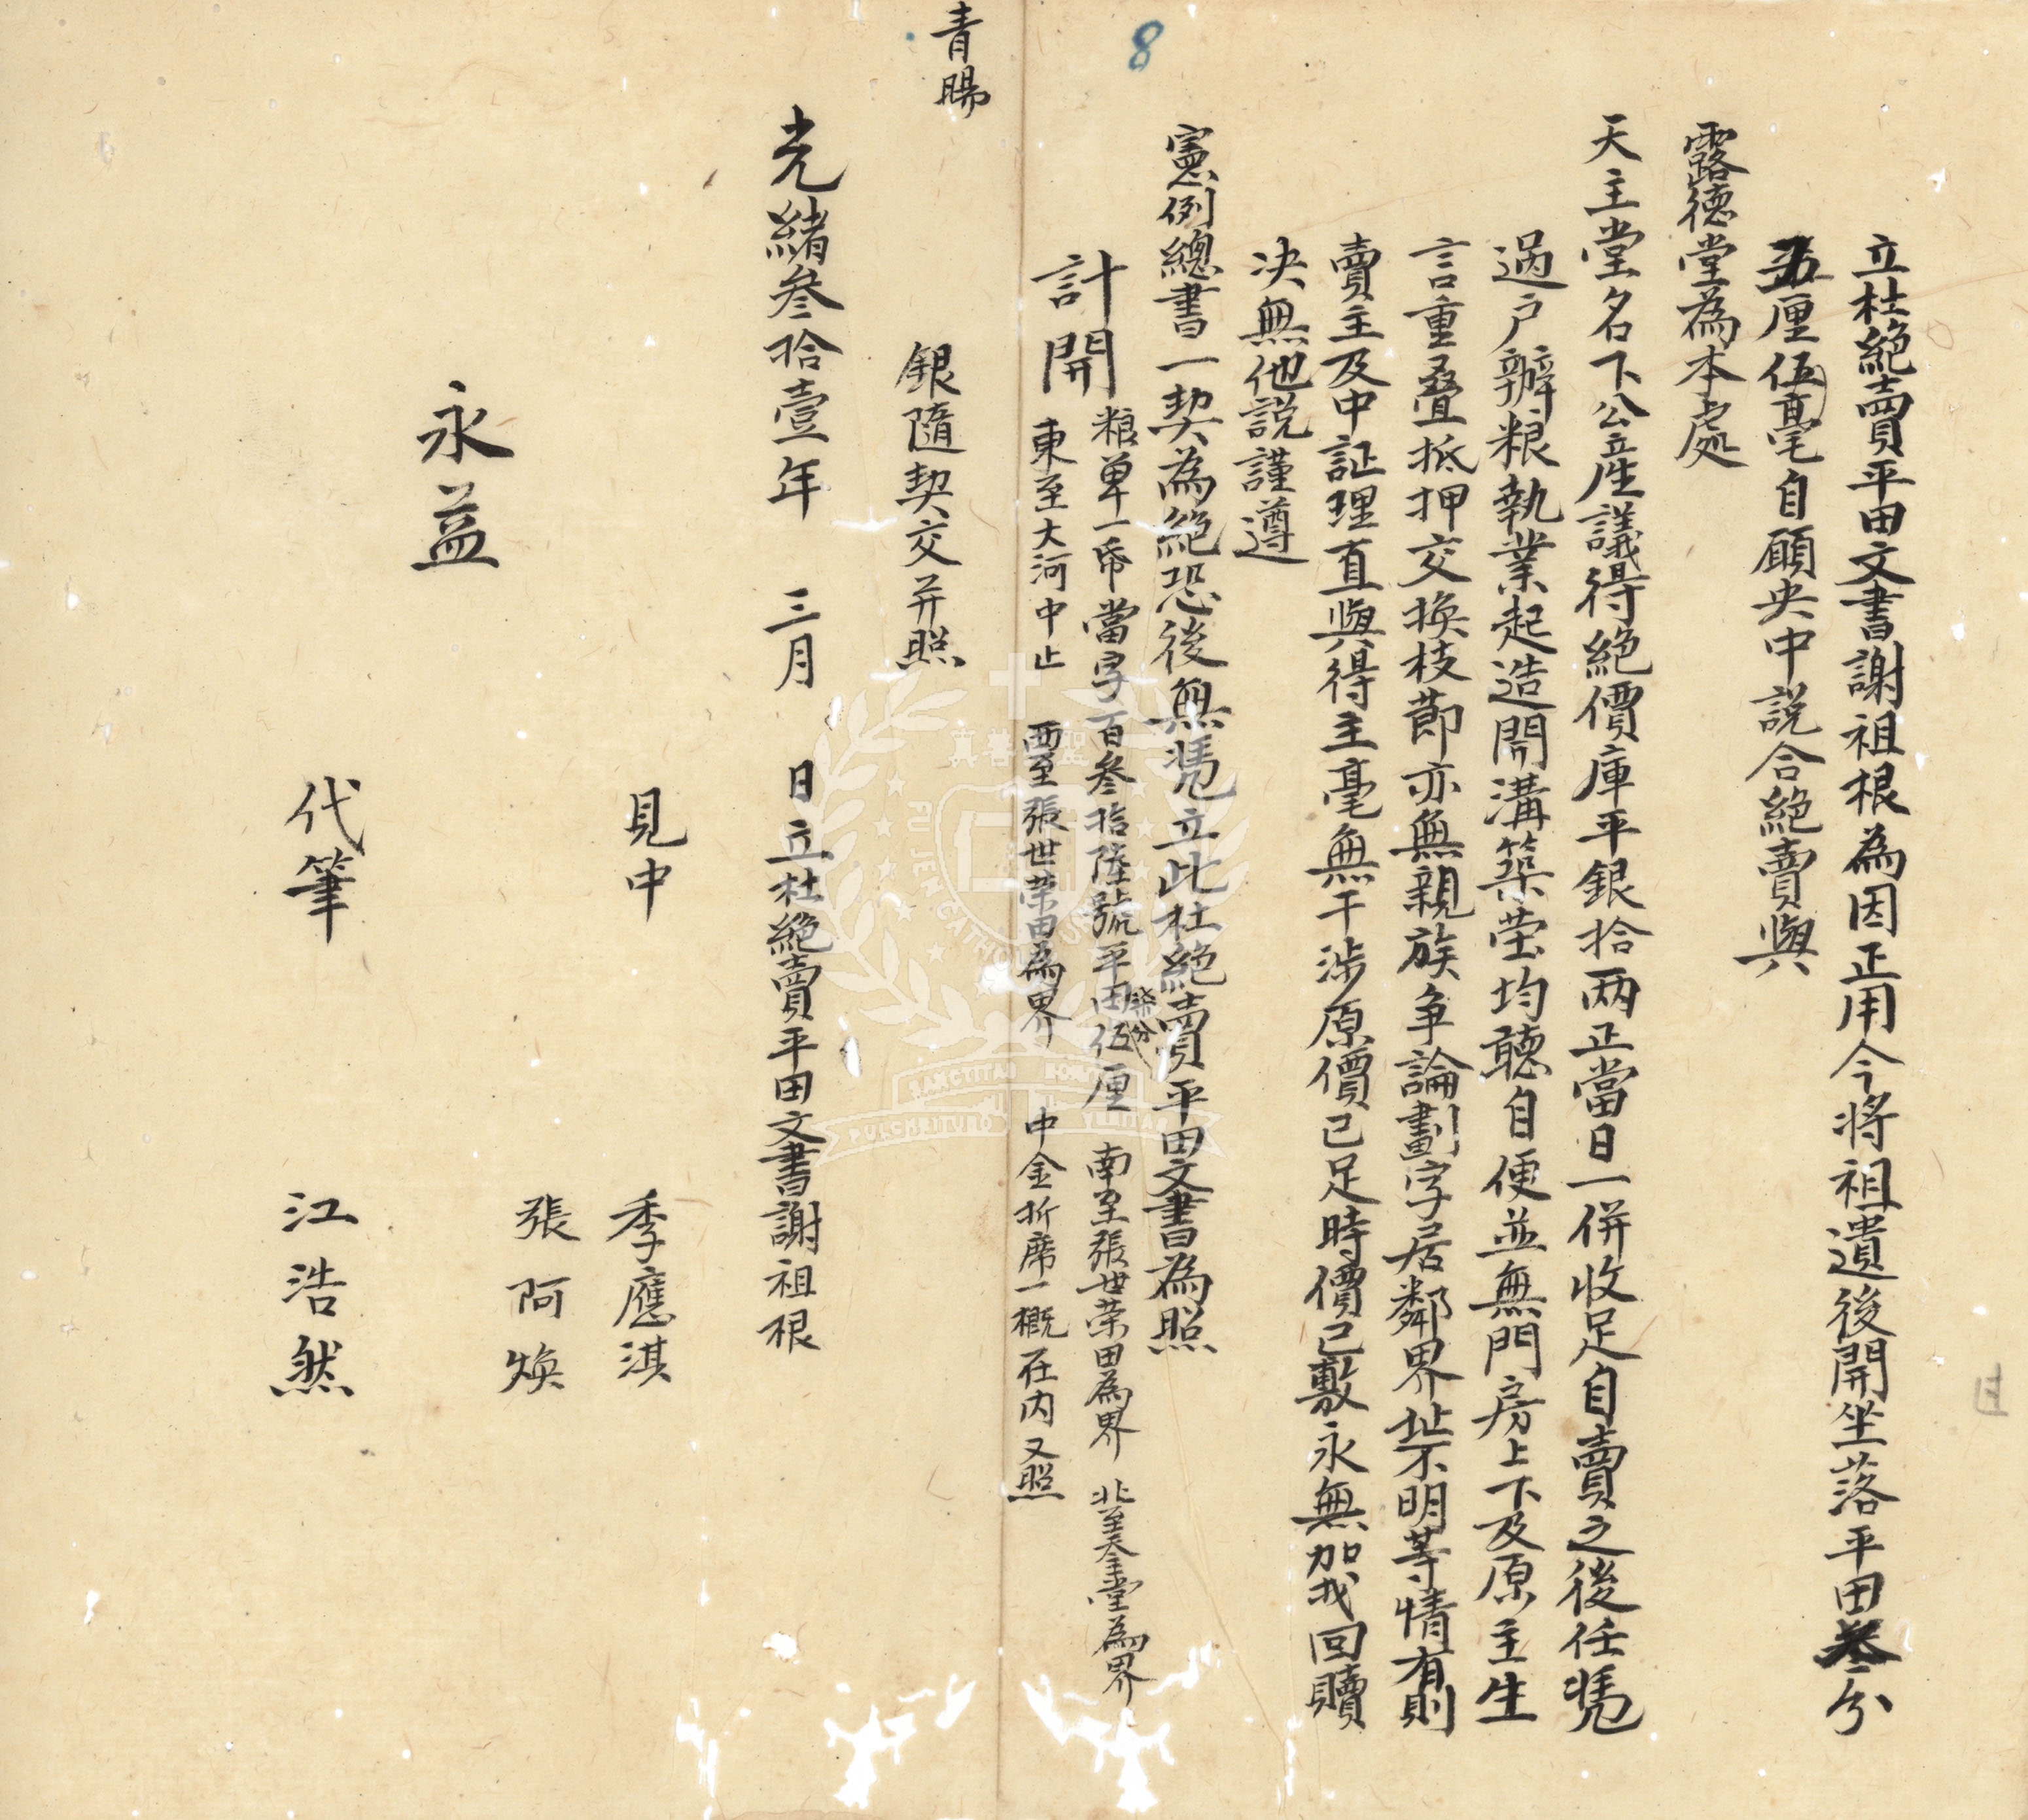 立杜絕賣平田文書謝祖根為因正用今將祖遺後開坐落平田叁分
五厘伍毫自願央中説合絕賣與
露德堂為本處
天主堂名下公產議得絕價庫平銀拾两正當日一併收足自賣之後任凴
過户辦粮執業起造開溝築塋均聽自便並無門房上下及原主生
言重叠抵押交換枝節亦無親族争論劃字居鄰界址不明等情有則
賣主及中証理直與得主毫無干涉原價已足時價已敷永無加找回贖
决無他説謹遵
憲例總書一契為絕恐後無凴立此杜絕賣平田文書為照
計開
粮单一帋當字百叁拾陸號平田伍厘 南至張世荣田為界 北至天主堂為界
叁分
東至大河中止 西至張世荣田為界 中金折席一概在内又照
銀隨契交并照
青暘
8
光緒叁拾壹年 三月 日立杜絕賣平田文書謝祖根
見中 季應淇
張阿煥
永益
代筆 江浩然
真善美聖
FU JEN CATHOLIC
SANCTITAS BONITAS
PULCHRITUDO VERITAS